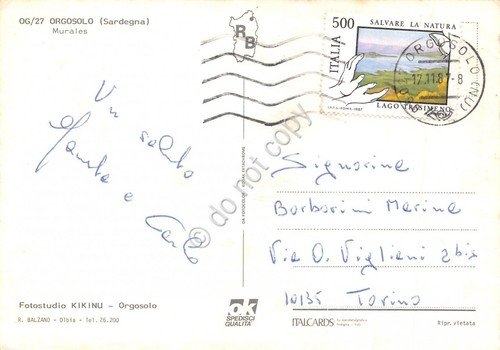 OG/27 ORGOSOLO (Sardegna)
Murales
RB
500
SALVARE LA NATURA
ITALIA
LAGO TRASIMENO
I.P.Z.S.-ROMA-1987
ORGOSOLO (NU)
17.11.87-8
Un
saluto
e Carlo
© do not copy
Signorina
Borborini Marina
Via O. Vigliani 2 bis
10135 Torino
Fotostudio KIKINU - Orgosolo
R. BALZANO - Olbia - Tel. 26.200
ok
SPEDISCI
QUALITA'
ITALCARDS
Bologna - Italy
Ripr. vietata